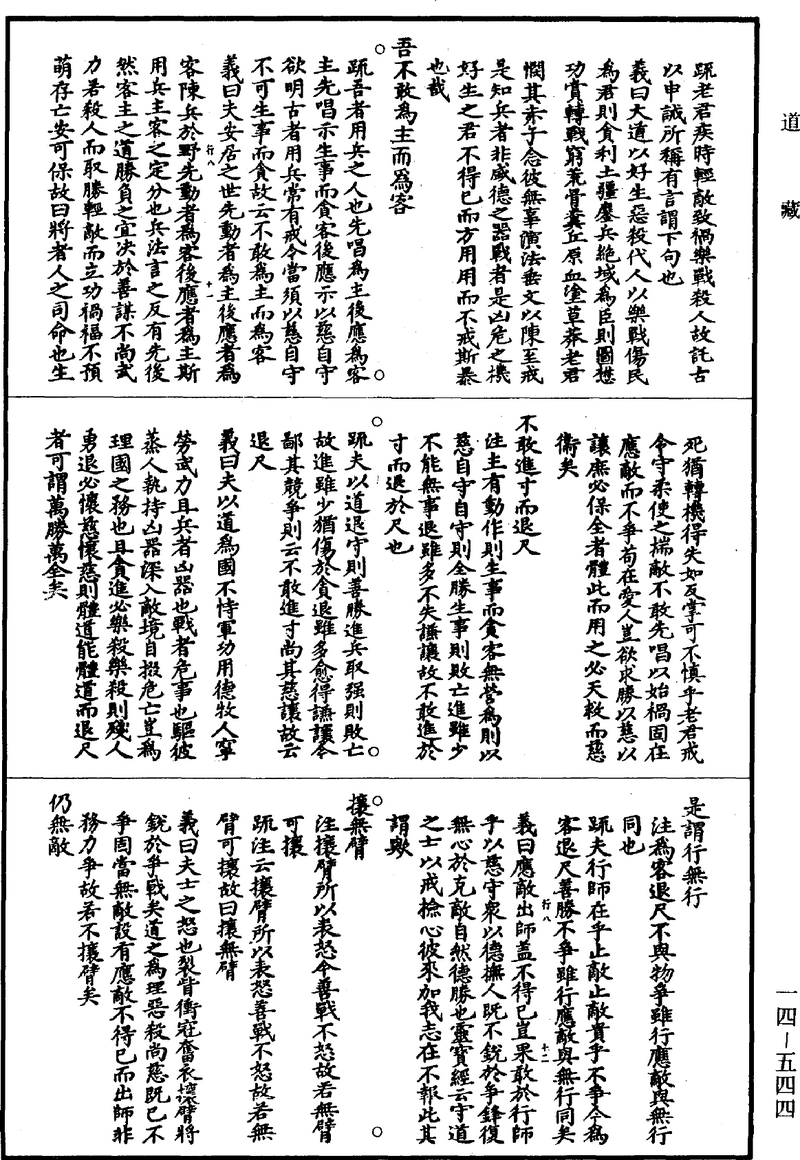 道藏
疏老君疾時輕敵致禍樂戰殺人故託古
以申誡所稱有言謂下句也
義曰大道以好生惡殺代人以樂戰傷民
為君則貪利土疆鏖兵絶域為臣則圖懋
功賞轉戰窮荒骨糞丘原血塗草莽老君
憫其赤子念彼無辜演法垂文以陳至戒
是知兵者非威德之器戰者是凶危之機
好生之君不得已而方用用而不戒斯暴
也哉
吾不敢為主而為客
疏吾者用兵之人也先唱為主後應為客
主先唱示生事而貪客後應示以慈自守
欲明古者用兵常有戒令當須以慈自守
不可生事而貪故云不敢為主而為客
義曰夫安居之世先動者為主後應者為
客陳兵於野先動者為客後應者為主斯
用兵主客之定分也兵法言之反有先後
然客主之道勝負之宜決於善謀不尚武
力若殺人而取勝輕敵而立功禍福不預
萌存亡安可保故曰將者人之司命也生
行八
十
死猶轉機得失如反掌可不慎乎老君戒
令守柔使之揣敵不敢先唱以始禍固在
應敵而不爭苟在愛人豈欲求勝以慈以
讓庶必保全者體此而用之必天救而慈
衛矣
不敢進寸而退尺
注主有動作則生事而貪客無營為則以
慈自守自守則全勝生事則敗亡進雖少
不能無事退雖多不失謙讓故不敢進於
寸而退於尺也
疏夫以道退守則善勝進兵取强則敗亡
故進雖少猶傷於貪退雖多愈得謙讓令
鄙其競爭則云不敢進寸尚其慈讓故云
退尺
義曰夫以道為國不恃軍功用德牧人寧
勞武力且兵者凶器也戰者危事也驅彼
蒸人執持凶器深入敵境自掇危亡豈為
理國之務也且貪進必樂殺樂殺則殘人
勇退必懷慈懷慈則體道能體道而退尺
者可謂萬勝萬全矣
是謂行無行
注為客退尺不與物爭雖行應敵與無行
同也
疏夫行師在乎止敵止敵貴乎不爭今為
客退尺善勝不爭雖行應敵與無行同矣
行八
十一
義曰應敵出師蓋不得已豈果敢於行師
乎以慈守衆以德撫人既不銳於爭鋒復
無心於克敵自然德勝也靈寶經云守道
之士以戒檢心彼來加我志在不報此其
謂歟
攘無臂
注攘臂所以表怒今善戰不怒故若無臂
可攘
疏注云攘臂所以表怒善戰不怒故若無
臂可攘故曰攘無臂
義曰夫士之怒也裂眥衝冠奮衣攘臂將
銳於爭戰矣道之為理惡殺尚慈既已不
爭固當無敵設有應敵不得已而出師非
務力爭故若不攘臂矣
仍無敵
一四－五四四